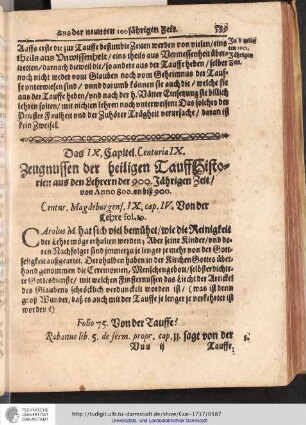 aus der neunten 100jährigen Zeit. 539
Aasso erste die zur Tauffe bestimbte Zeiten werden von vielen / eins
theils aus Unwissenheit / eins theils aus Vermessenheit über-
tretten / darnach dieweil die / so andere aus der Tauffe heben / selber
noch nicht weder vom Glauben noch vom Geheimnus der Tauf-
fe unterwiesen sind / unnd darumb können sie auch die / welche sie
aus der Tauffe heben / und nach der h. Väter Einsetzung sie billich
lehren solten / mit nichten lehren noch unterweisen Das solches der
Priester Faulheit und der Zuhörer Trägheit verursache / daran ist
kein Zweifel.
Das IX. Capitel. Centuria IX.
Zeugnussen der heiligen Tauff Histo-
rien aus den Lehrern der 900. Jährigen Zeit /
von Anno 800. an biß 900.
Centur. Magdeburgens. IX. cap. IV. Von der
Lehre fol.
CArolus M. hat sich viel bemühet / wie die Reinigkeit
der Lehre möge erhalten werden; Aber seine Kinder / und de-
ren Nachfolger sind immer je länger je mehr von der Gott-
seligkeit außgeartet. Derohalben haben in der Kirchen Gottes über-
hand genommen die Ceremonien / Menschengebott / selbsterdichte-
te Gottesdienste / mit welchen Finsternussen das Liecht der Artickel
des Glaubens schröcklich verdunckelt worden ist / (was ist denn
groß Wunder, daß es auch mit der Tauffe je länger je verkehrter ist
worden?)
Folio 75. Von der Tauffe?
Rabanus lib. 5. de serm. propr. cap. 11. sagt von der
Uuu ij Tauffe
http://tudigit.ulb.tu-darmstadt.de/show/Cue-1717/0587
Universitäts- und Landesbibliothek Darmstadt
TECHNISCHE
UNIVERSITÄT
DARMSTADT